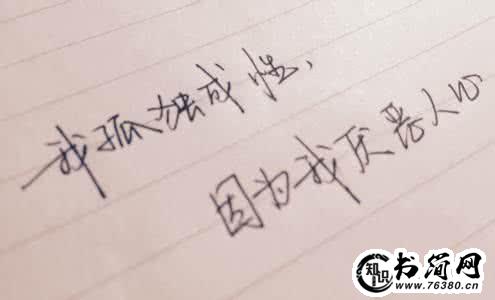 我孤独成性,
因为我厌恶人心
知识
书简网
www.76380.com